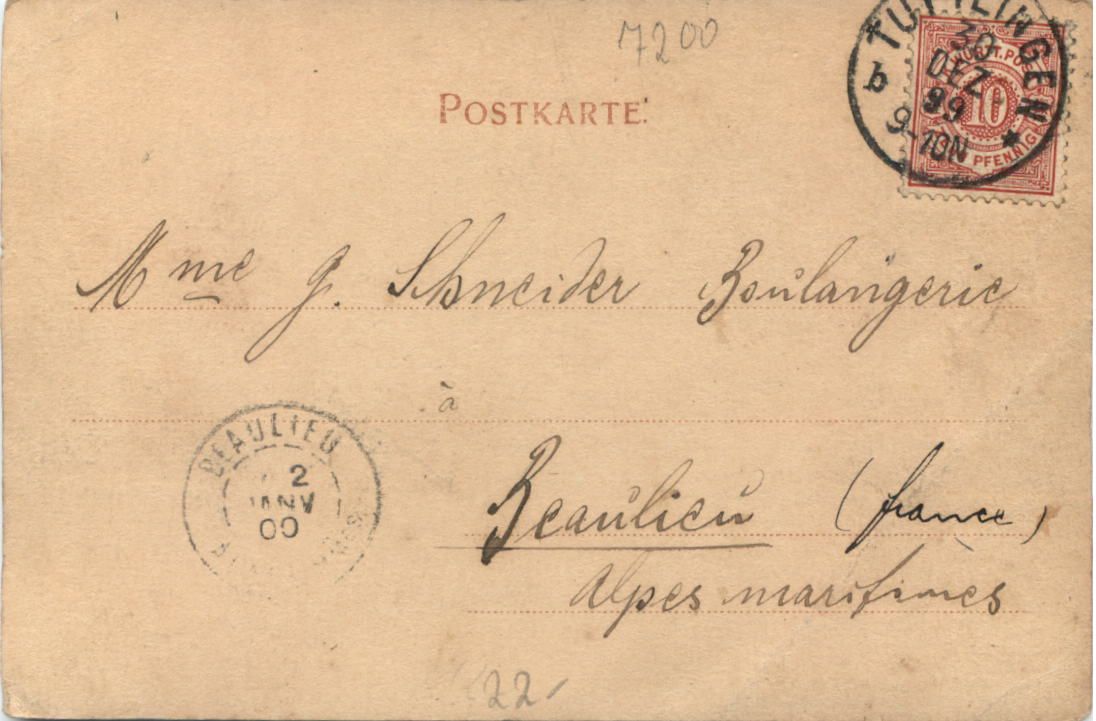 7200
TUTTLINGEN
30
DEZ
99
9-10N
b
WÜRTT. POST
10
PFENNIG
POSTKARTE.
Mme G. Schneider Boulangerie
à
BEAULIEU
2
JANV
00
Beaulieu (france)
Alpes maritimes
22